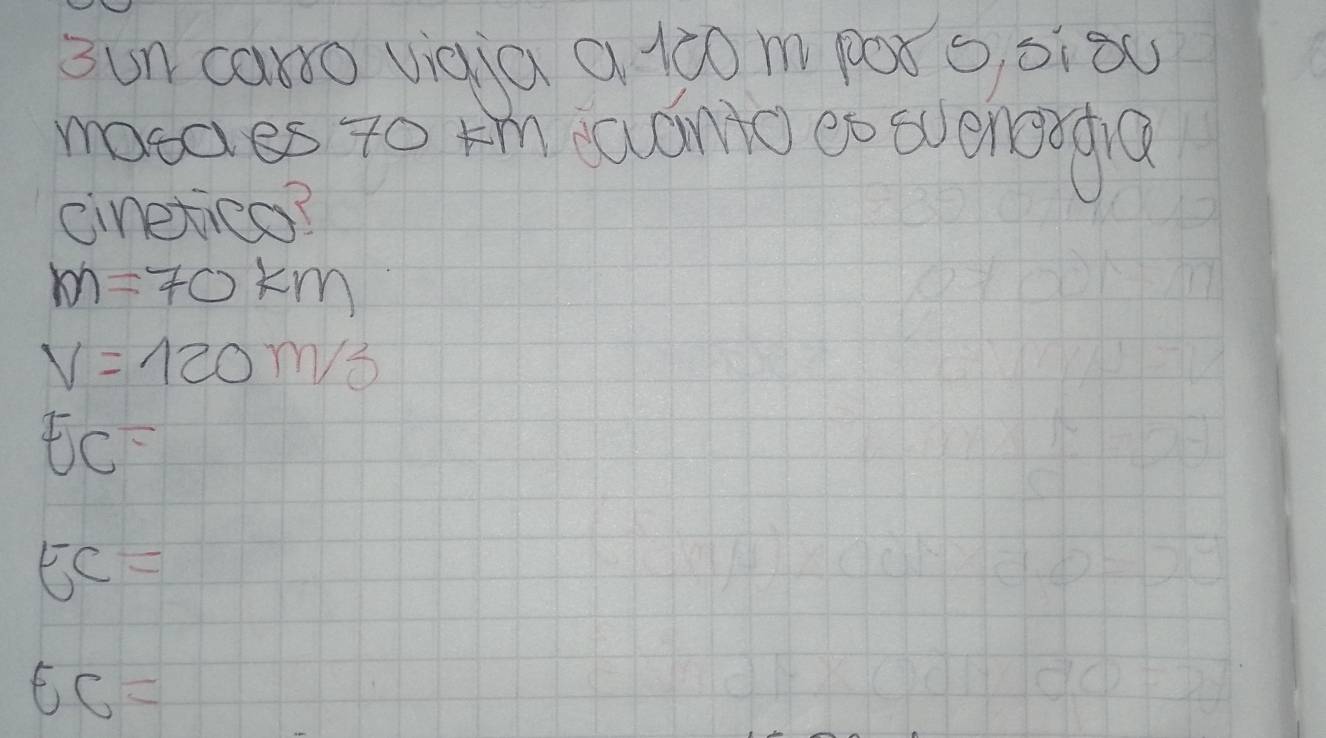 3 un carro viaja a 120 m por s, si su
masa es 70 km ¿cuánto es su energia
cinetica?
m = 70 km
V = 120 m/s
Ec =
Ec =
Ec =